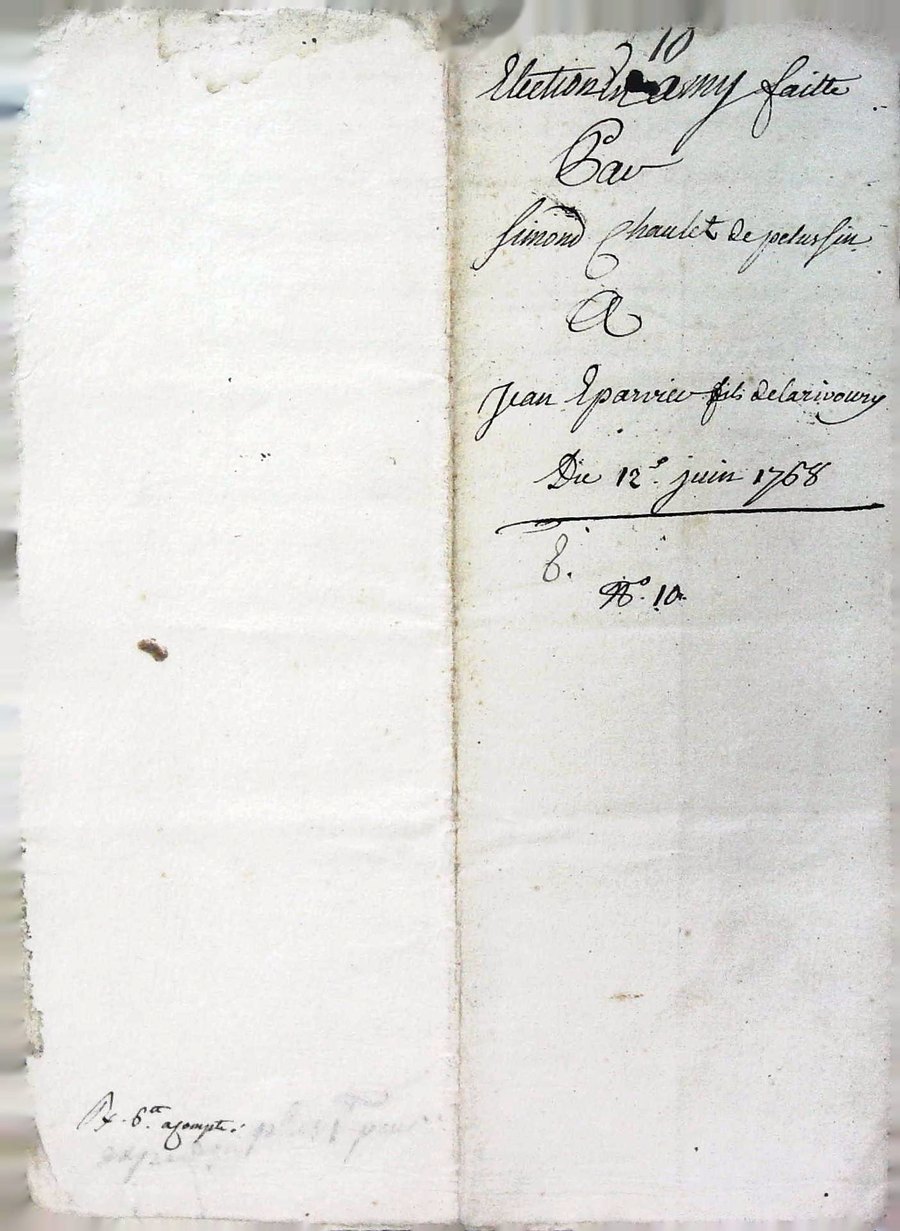 10
Election En amy faitte
Par
Simond Chaulet de pelussin
A
Jean Eparvier fils de larivoury
Du 12e. juin 1768
N°. 10
Rx. 6tt. acompte.